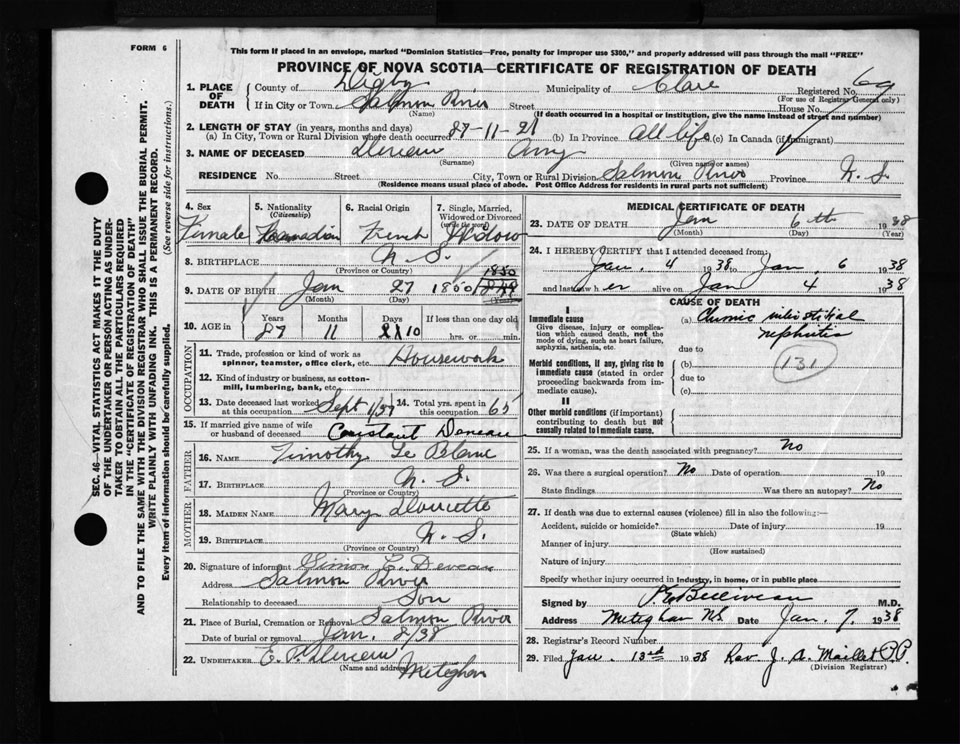 FORM 6
This form if placed in an envelope, marked "Dominion Statistics—Free, penalty for improper use $300," and properly addressed will pass through the mail "FREE"
PROVINCE OF NOVA SCOTIA—CERTIFICATE OF REGISTRATION OF DEATH
SEC. 46—VITAL STATISTICS ACT MAKES IT THE DUTY
OF THE UNDERTAKER OR PERSON ACTING AS UNDER-
TAKER TO OBTAIN ALL THE PARTICULARS REQUIRED
IN THE "CERTIFICATE OF REGISTRATION OF DEATH"
AND TO FILE THE SAME WITH THE DIVISION REGISTRAR WHO SHALL ISSUE THE BURIAL PERMIT.
WRITE PLAINLY WITH UNFADING INK. THIS IS A PERMANENT RECORD.
Every item of information should be carefully supplied. (See reverse side for instructions.)
1. PLACE OF DEATH
County of Digby Municipality of Clare Registered No. 69
(For use of Registrar General only)
If in City or Town Salmon River Street House No.
(Name) (If death occurred in a hospital or Institution, give the name instead of street and number)
2. LENGTH OF STAY (in years, months and days)
(a) In City, Town or Rural Division where death occurred 87-11-21 (b) In Province All life (c) In Canada (if immigrant)
3. NAME OF DECEASED Deveau Amy
(Surname) (Given name or names)
RESIDENCE No. Street City, Town or Rural Division Salmon River Province N. S.
(Residence means usual place of abode. Post Office Address for residents in rural parts not sufficient)
4. Sex Female
5. Nationality (Citizenship) Canadian
6. Racial Origin French
7. Single, Married, Widowed or Divorced (write the word) Widow
8. BIRTHPLACE N. S.
(Province or Country)
9. DATE OF BIRTH Jan 27 1850
(Month) (Day) (Year)
10. AGE in Years Months Days If less than one day old
87 11 10 hrs. or min.
OCCUPATION
11. Trade, profession or kind of work as spinner, teamster, office clerk, etc. Housework
12. Kind of industry or business, as cotton-mill, lumbering, bank, etc.
13. Date deceased last worked at this occupation Sept 1/37 14. Total yrs. spent in this occupation 65
15. If married give name of wife or husband of deceased Constant Deveau
FATHER
16. NAME Timothy Le Blanc
17. BIRTHPLACE N. S.
(Province or Country)
MOTHER
18. MAIDEN NAME Mary Doucette
19. BIRTHPLACE N. S.
(Province or Country)
20. Signature of informant Simon E. Deveau
Address Salmon River
Relationship to deceased Son
21. Place of Burial, Cremation or Removal Salmon River
Date of burial or removal Jan. 8/38
22. UNDERTAKER E. P. Deveau Meteghan
(Name and address)
MEDICAL CERTIFICATE OF DEATH
23. DATE OF DEATH Jan 6th 1938
(Month) (Day) (Year)
24. I HEREBY CERTIFY that I attended deceased from:
Jan. 4 1938 to Jan. 6 1938
and last saw her alive on Jan 4 1938
CAUSE OF DEATH
I
Immediate cause
Give disease, injury or complication which caused death, not the mode of dying, such as heart failure, asphyxia, asthenia, etc.
(a) Chronic interstitial nephritis
due to
131
Morbid conditions, if any, giving rise to immediate cause (stated in order proceeding backwards from immediate cause).
(b)
due to
(c)
II
Other morbid conditions (if important) contributing to death but not causally related to Immediate cause.
25. If a woman, was the death associated with pregnancy? No
26. Was there a surgical operation? No Date of operation 19
State findings Was there an autopsy? No
27. If death was due to external causes (violence) fill in also the following:—
Accident, suicide or homicide? Date of injury 19
(State which)
Manner of injury
(How sustained)
Nature of injury
Specify whether injury occurred in Industry, in home, or in public place
Signed by P E Belliveau M.D.
Address Meteghan N.S. Date Jan. 7. 1938
28. Registrar's Record Number
29. Filed Jan. 13rd 1938 Rev. J. A. Maillet P.P.
(Division Registrar)